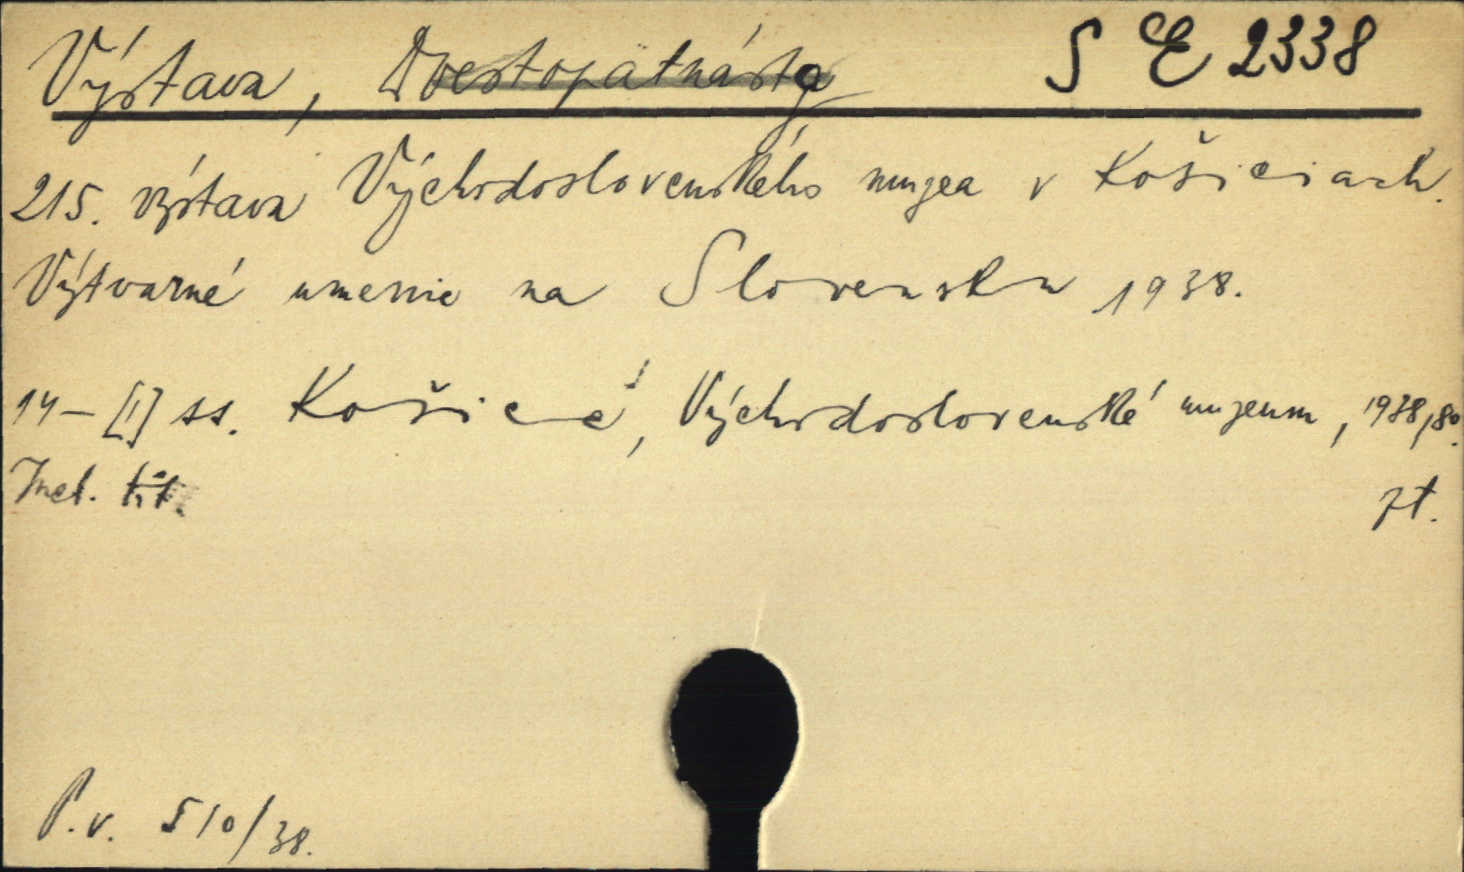 Výstava, Dvestopätnásta S E 2338
215. výstava Východoslovenského muzea v Košiciach.
Výtvarné umenie na Slovensku 1938.
14-[1] ss. Košice, Východoslovenské muzeum, 1938, 8º.
Incl. tit. zt.
P.v. 510/38.